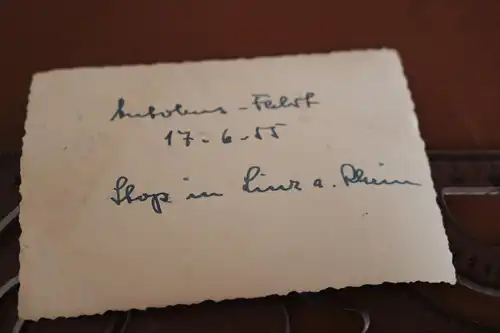 Autobus-Fahrt
17-6-55
Stop in Linz a. Rhein